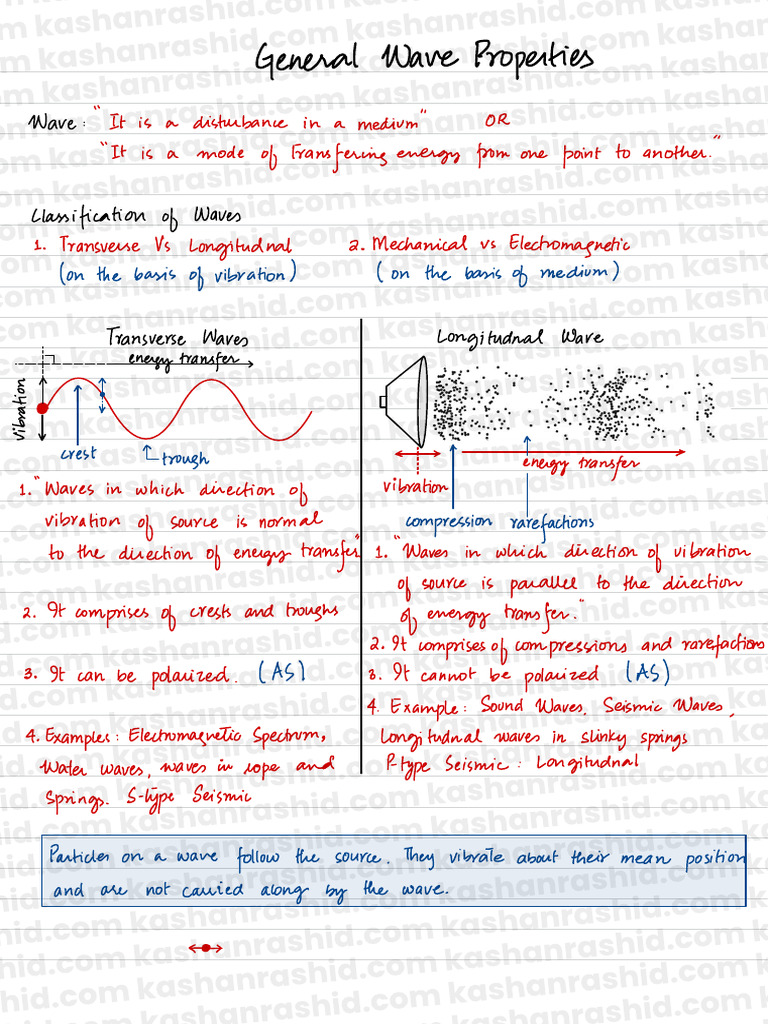 General Wave Properties
Wave: "It is a disturbance in a medium" OR
"It is a mode of Transfering energy from one point to another."
Classification of Waves
1. Transverse Vs Longitudnal
(on the basis of vibration)
2. Mechanical vs Electromagnetic
(on the basis of medium)
Transverse Waves
energy transfer
vibration
crest
trough
1. "Waves in which direction of
vibration of source is normal
to the direction of energy transfer"
2. It comprises of crests and troughs
3. It can be polarized. (AS)
4. Examples: Electromagnetic Spectrum,
Water waves, waves in rope and
springs. S-type Seismic
Longitudnal Wave
energy transfer
vibration
compression rarefactions
1. "Waves in which direction of vibration
of source is parallel to the direction
of energy transfer."
2. It comprises of compressions and rarefactions
3. It cannot be polarized (AS)
4. Example: Sound Waves, Seismic Waves,
Longitudnal waves in slinky springs
P-type Seismic: Longitudnal
Particles on a wave follow the source. They vibrate about their mean position
and are not carried along by the wave.
kashanrashid.com